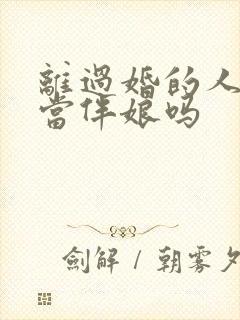 離過婚的人
當伴娘嗎
劍解 / 朝雾夕